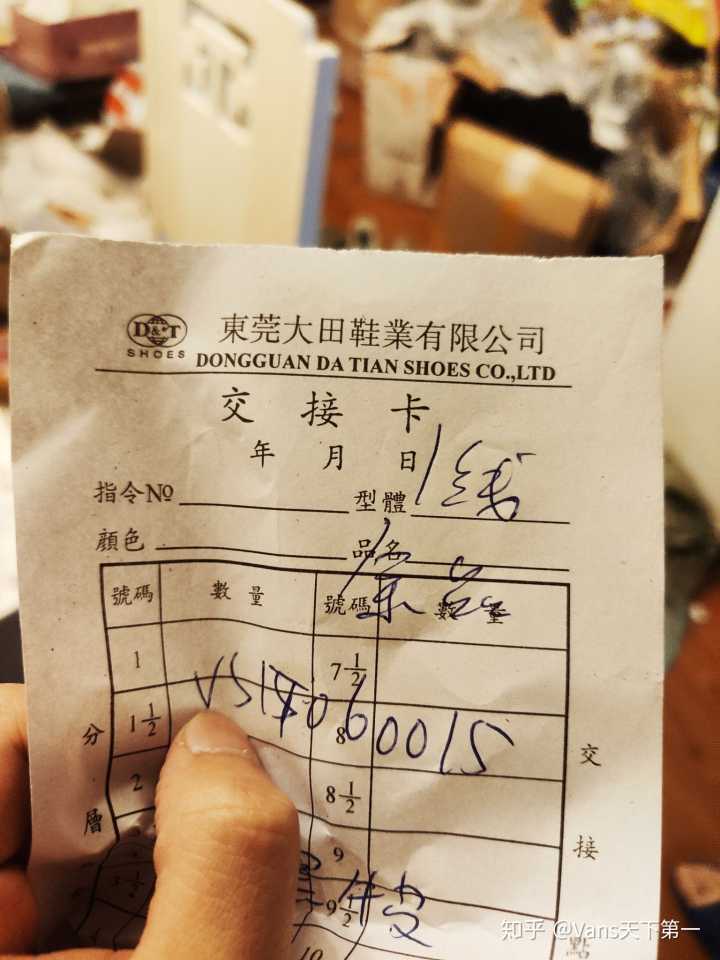 D&T SHOES 東莞大田鞋業有限公司
DONGGUAN DA TIAN SHOES CO.,LTD
交接卡
年 月 日
指令№ 型體 1线
顏色 品名
號碼 數量 號碼 數量
1 7 1/2
1 1/2 8
2 8 1/2
9
9 1/2
10
分層
交接點
知乎 @Vans天下第一